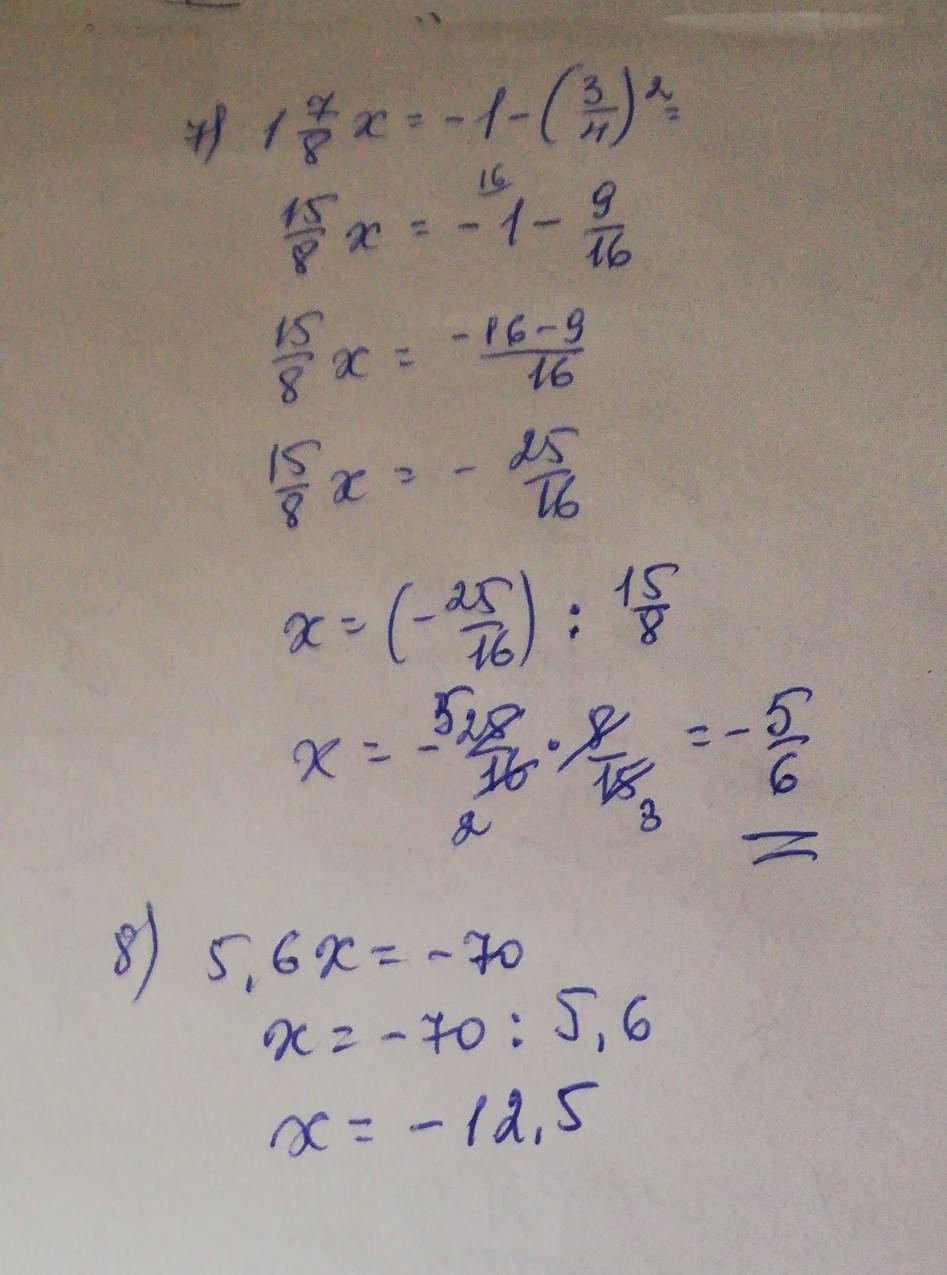 7) 1 7/8 x = -1 - (3/4)² =
15/8 x = - 1 16 - 9/16
15/8 x = -16-9/16
15/8 x = - 25/16
x = (- 25/16) : 15/8
x = - 25/16 5 2 · 8/15 3 = - 5/6
8) 5,6x = -70
x = -70 : 5,6
x = -12,5